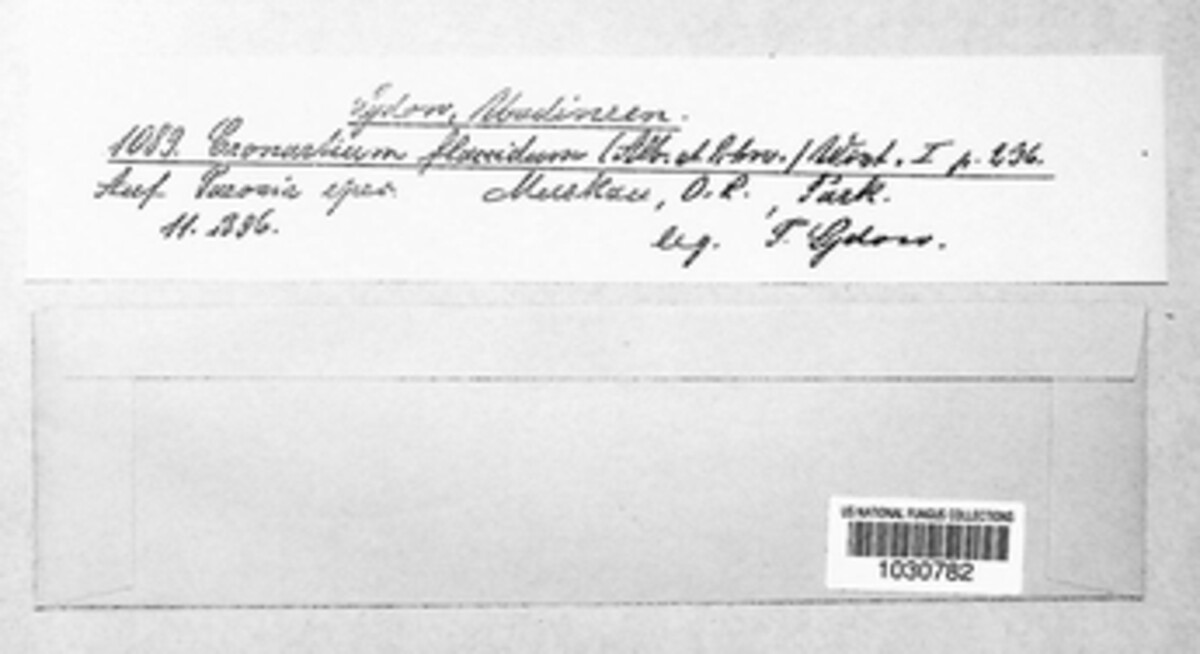 Sydow, Uredineen.
1089. Cronartium flaccidum (Alb. et Schw.) Wint. I p. 236.
Auf Paeonia spec. Muskau, O. L., Park.
11. 1896. leg. P. Sydow.
US NATIONAL FUNGUS COLLECTIONS
1030782